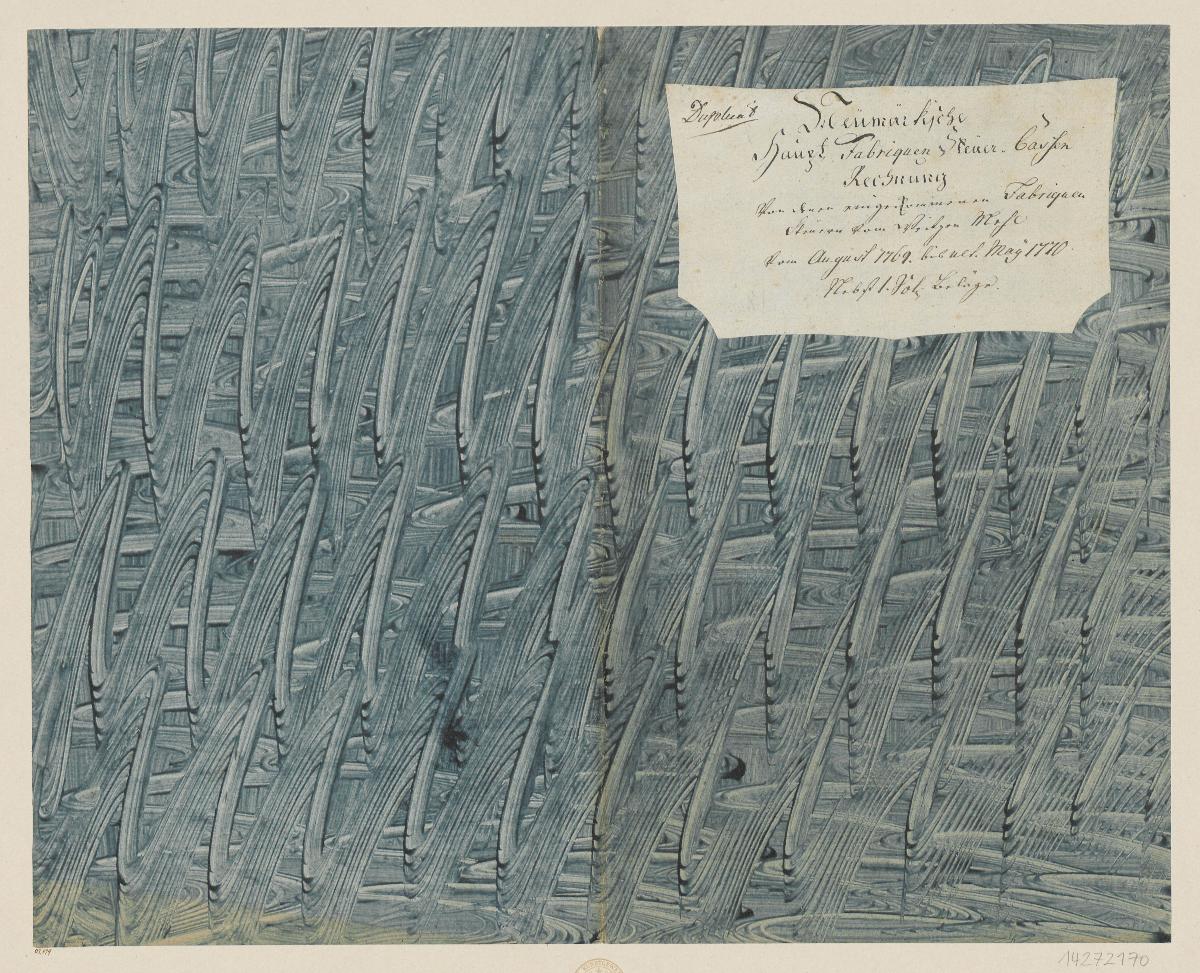 Duplicat
Neümärkische
Haupt Fabriquen Steuer-Cassen
Rechnung
Von denen eingekommenen Fabriquen
Steuern vom Weitzen Mehl
vom August 1769. bis ult. May 1770
Nebst 1. Vol. Beläge.
14272170